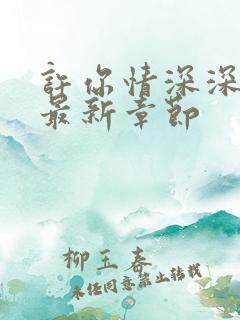 許你情深深
最新章節
柳玉春
未经同意禁止转载